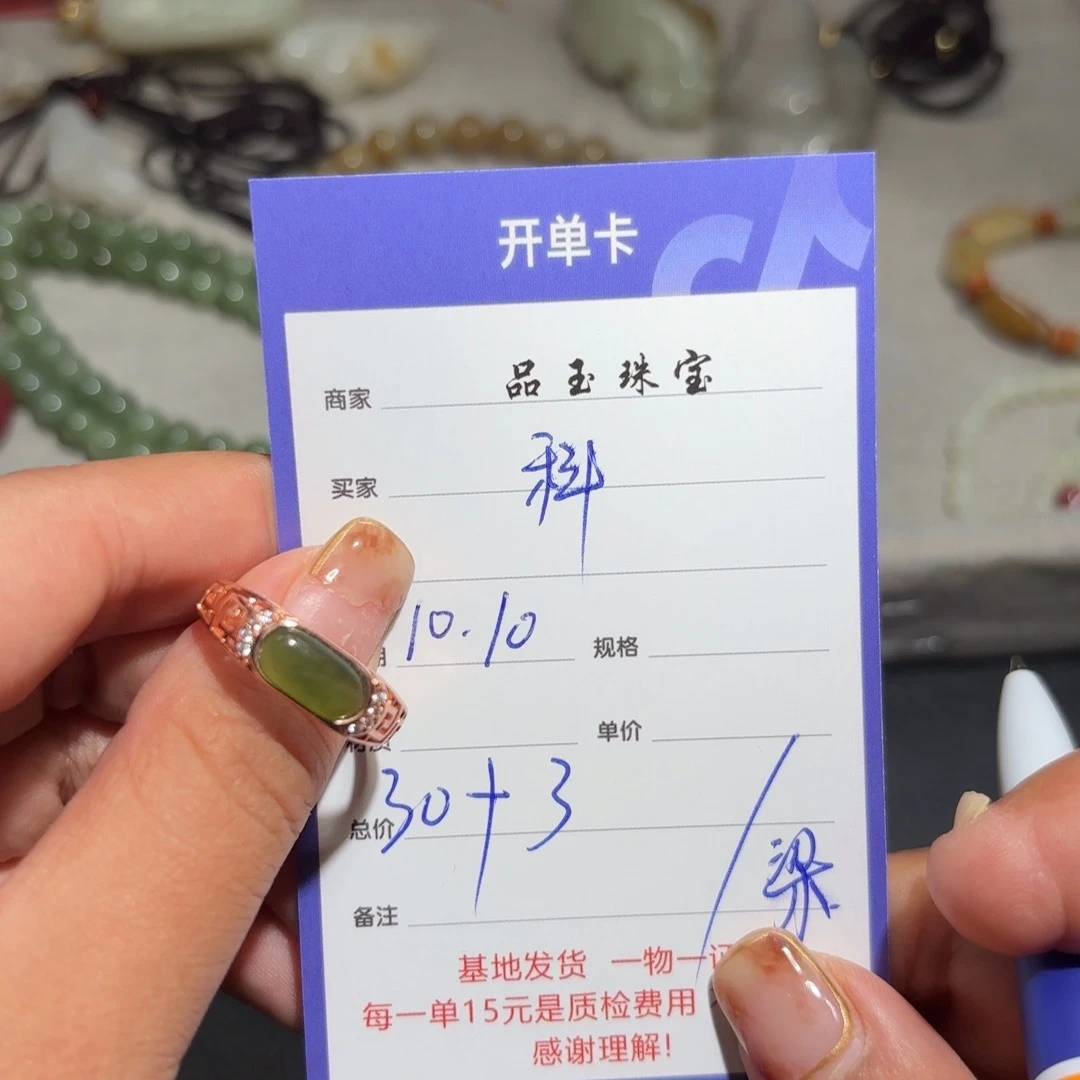 开单卡
商家 品玉珠宝
买家 科
10.10 规格
材质 单价
总价 30+3
梁
备注
基地发货 一物一记
每一单15元是质检费用
感谢理解!